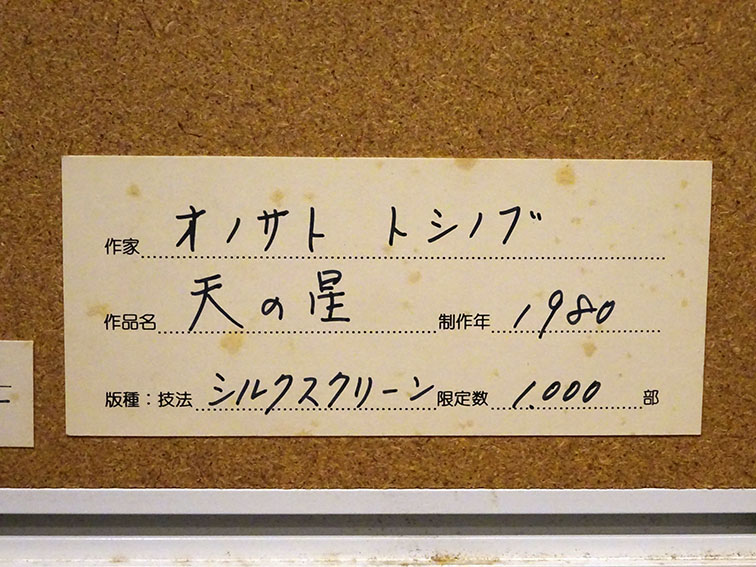 作家 オノサト トシノブ
作品名 天の星 制作年 1980
版種：技法 シルクスクリーン 限定数 1.000 部